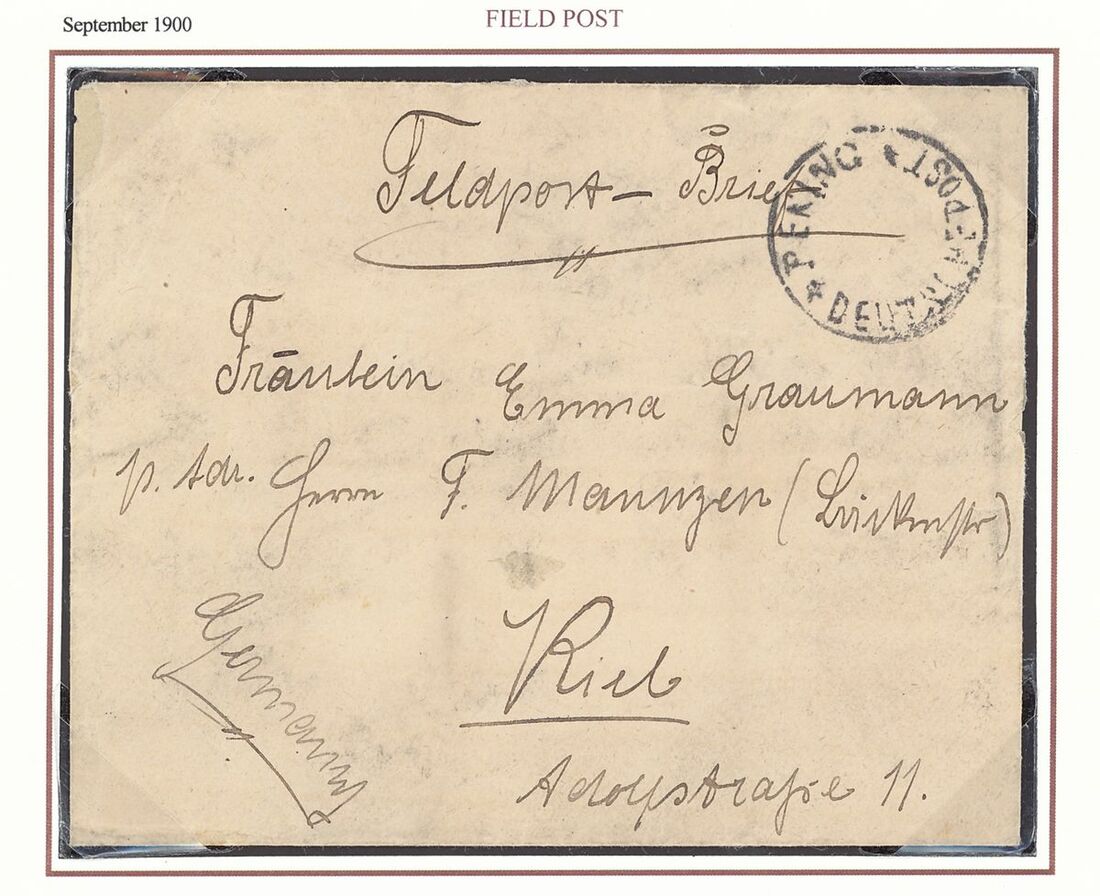 September 1900
FIELD POST
Feldpost - Brief
* PEKING * DEUTSCHE POST
Fräulein Emma Graumann
p. Adr. Herrn F. Mannzen
Kiel
Germany
Adolfstraße 11.